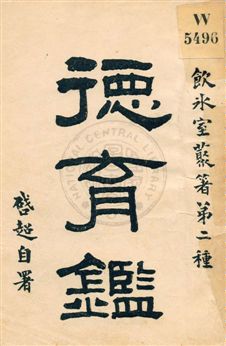 W
5496
飲氷室叢著第二種
德育鑑
啓超自署
NATIONAL CENTRAL LIBRARY